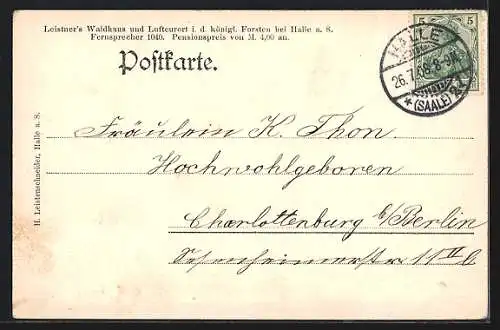 Leistner's Waldhaus und Luftcurort i. d. königl. Forsten bei Halle a. S.
Fernsprecher 1040. Pensionspreis von M. 4,00 an.
Postkarte.
5 5
HALLE
26.7.08. 8-9N.
* (SAALE) 2
Fräulein K. Thon.
Hochwohlgeboren
Charlottenburg b/Berlin
11 II b
H. Leistenschneider, Halle a. S.